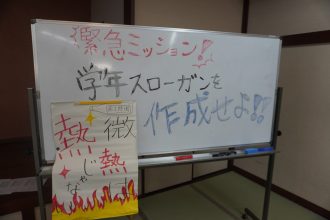 緊急ミッション!!
学年スローガンを
作成せよ!!
微熱
熱じゃな